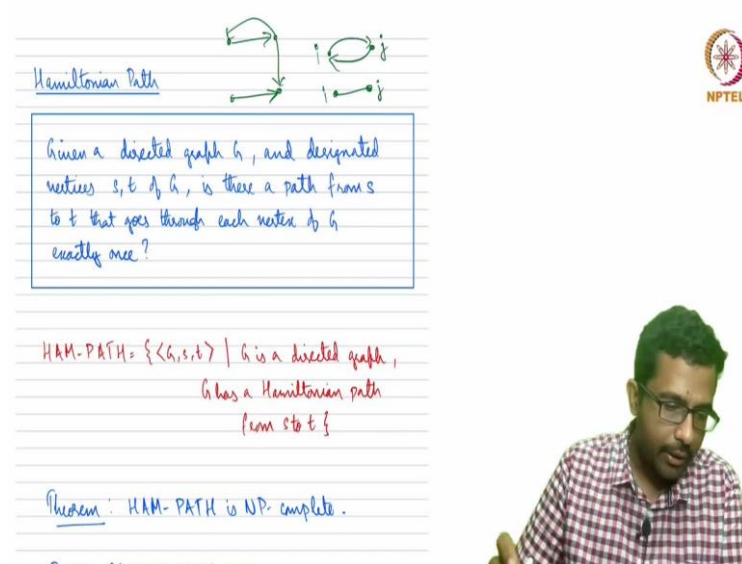 i j
i j
Hamiltonian Path
NPTEL
Given a directed graph G, and designated
vertices s, t of G, is there a path from s
to t that goes through each vertex of G
exactly once?
HAM-PATH = {<G,s,t> | G is a directed graph,
G has a Hamiltonian path
from s to t}
Theorem: HAM-PATH is NP-complete.